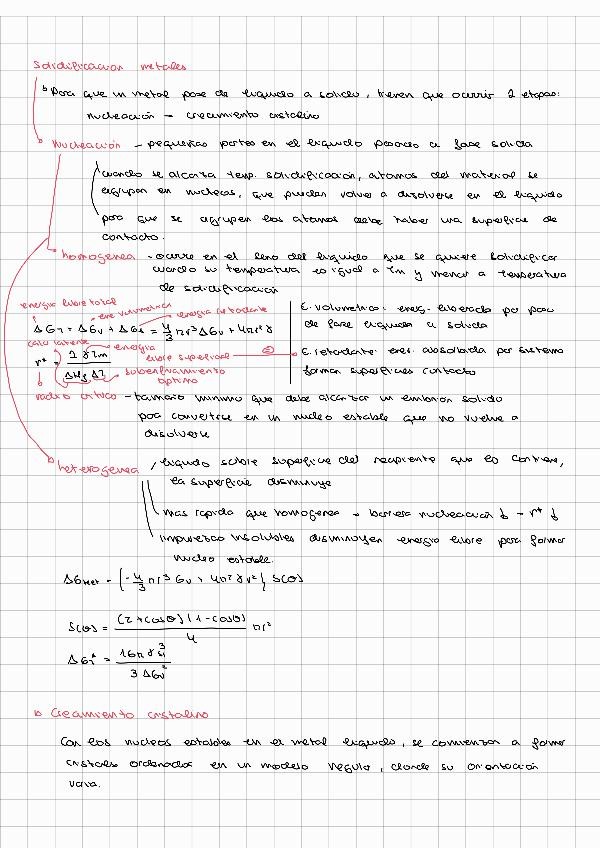 Solidificacion metales
Para que un metal pase de liquido a solido, tienen que ocurrir 2 etapas:
nucleación - crecimiento cristalino
Nucleación - pequeñas partes en el liquido pasando a fase solida
cuando se alcanza temp. solidificación, atomos del material se
agrupan en nucleos, que pueden volver a disolverse en el liquido
para que se agrupen los atomos debe haber una superficie de
contacto.
homogenea - ocurre en el seno del liquido que se quiere solidificar
cuando su temperatura es igual a Tm y menor a temperatura
de solidificación
energia libre total
ene volumetrica
energia retardante
ΔG_T = ΔG_V + ΔG_s = 4/3 πr³ΔG_V + 4πr²γ
E. volumetrica: energ. liberada por paso
de fase liquida a solida
calor latente
energia
libre superficial
r* = 2γTm / ΔH_f ΔT
subenfriamiento
optimo
E. retardante: ener. absorbida por sistema
formar superficies contacto
radio critico - tamaño minimo que debe alcanzar un embrion solido
para convertirse en un nucleo estable que no vuelve a
disolverse
heterogenea
liquido sobre superficie del recipiente que lo contiene,
la superficie disminuye
mas rapida que homogenea → barrera nucleación ↓ - r* ↓
impurezas insolubles disminuyen energia libre para formar
nucleo estable.
ΔG_Het = {-4/3 πr³ G_V + 4πr² γ } S(θ)
S(θ) = (2+cosθ)(1-cosθ) / 4
ΔG* = 16πγ³_sl / 3ΔG_V²
Crecimiento cristalino
Con los nucleos estables en el metal liquido, se comienzan a formar
cristales ordenados en un modelo regular, donde su orientación
varia.